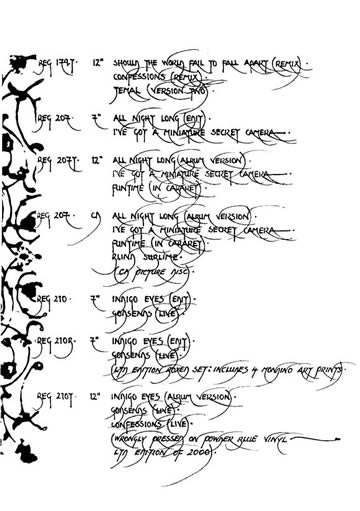 BEG 12" SHOULD THE WORLD FAIL TO FALL APART (REMIX) ·
CONFESSIONS (REMIX) ·
TEMAL (VERSION TWO) ·
BEG 207 · 7" ALL NIGHT LONG (EDIT) ·
I'VE GOT A MINIATURE SECRET CAMERA ·
BEG 207T · 12" ALL NIGHT LONG (ALBUM VERSION) ·
I'VE GOT A MINIATURE SECRET CAMERA ·
FUNTIME (IN CABARET) ·
BEG 207 · CD ALL NIGHT LONG (ALBUM VERSION) ·
I'VE GOT A MINIATURE SECRET CAMERA ·
FUNTIME (IN CABARET) ·
BLIND SUBLIME ·
(CD PICTURE DISC) ·
BEG 210 · 7" INDIGO EYES (EDIT) ·
GODSENDS (LIVE) ·
BEG 210B · 7" INDIGO EYES (EDIT) ·
GODSENDS (LIVE) ·
LTD EDITION BOXED SET: INCLUDES 4 MONDINO ART PRINTS ·
BEG 210T · 12" INDIGO EYES (ALBUM VERSION) ·
GODSENDS (LIVE) ·
CONFESSIONS (LIVE) ·
(WRONGLY PRESSED ON POWDER BLUE VINYL ·
LTD EDITION OF 2000) ·